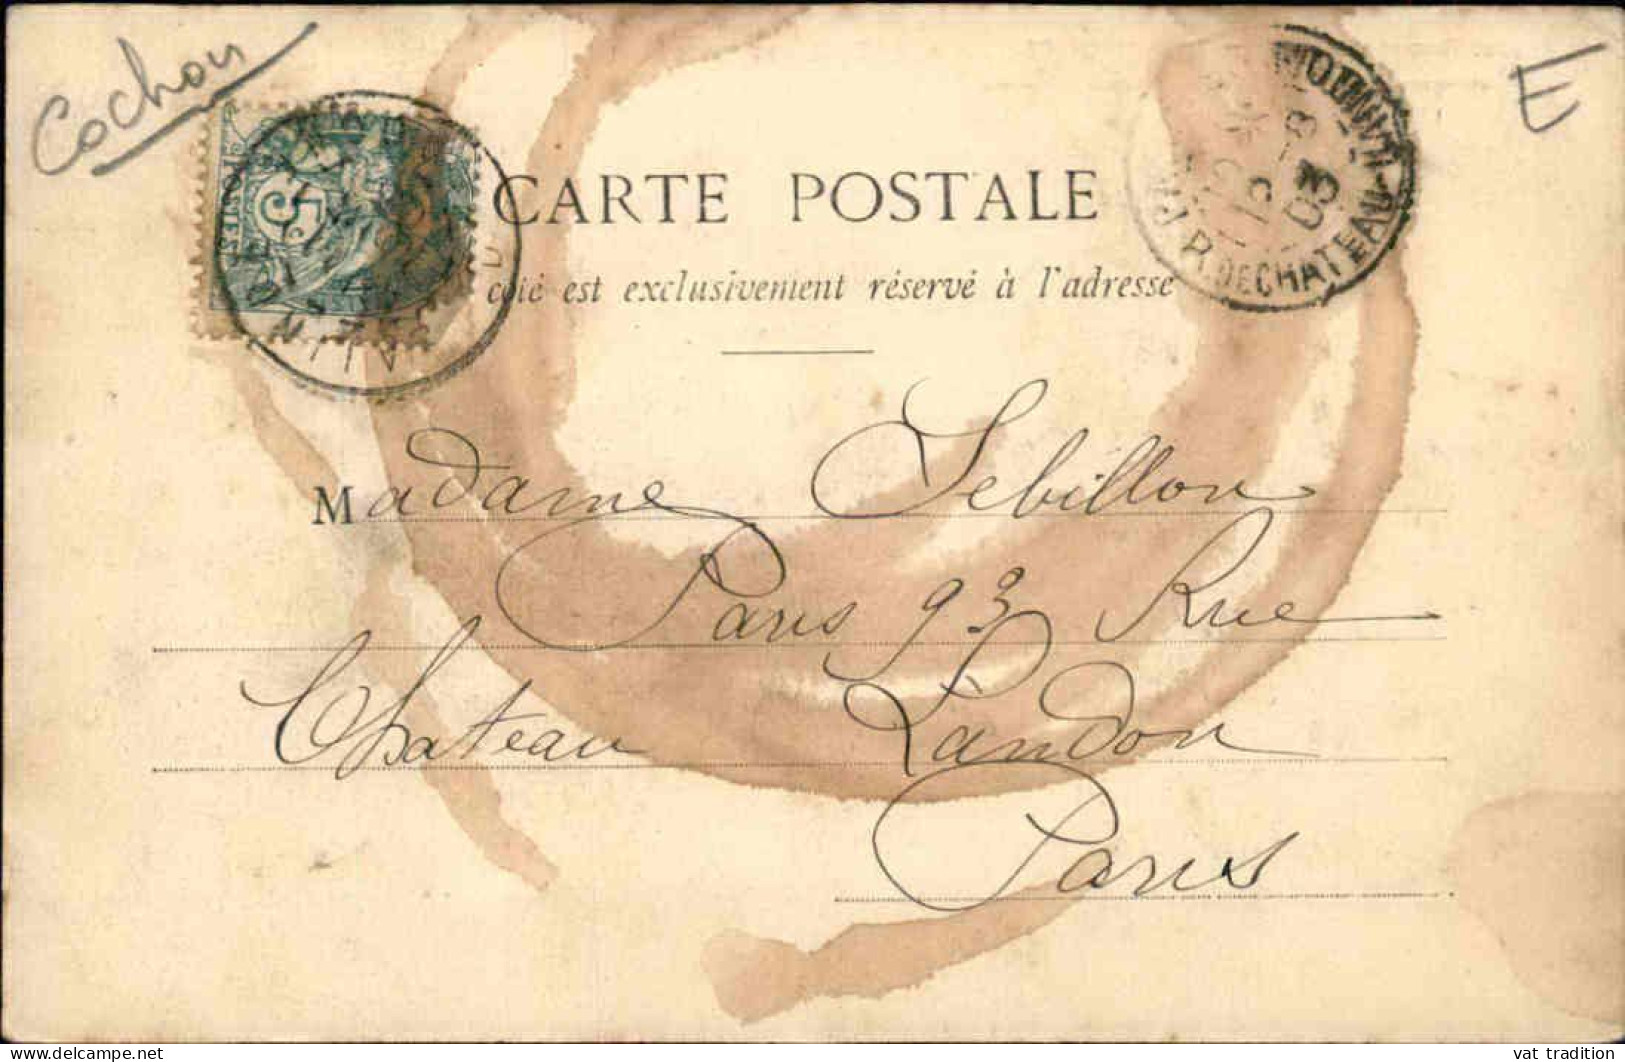 Cochon
E
CARTE POSTALE
coté est exclusivement réservé à l'adresse
Madame Sebillon
Paris 93 Rue
Chateau Landon
Paris
5
POSTES
R. DE CHATEAU-LANDON
12
03
vat tradition